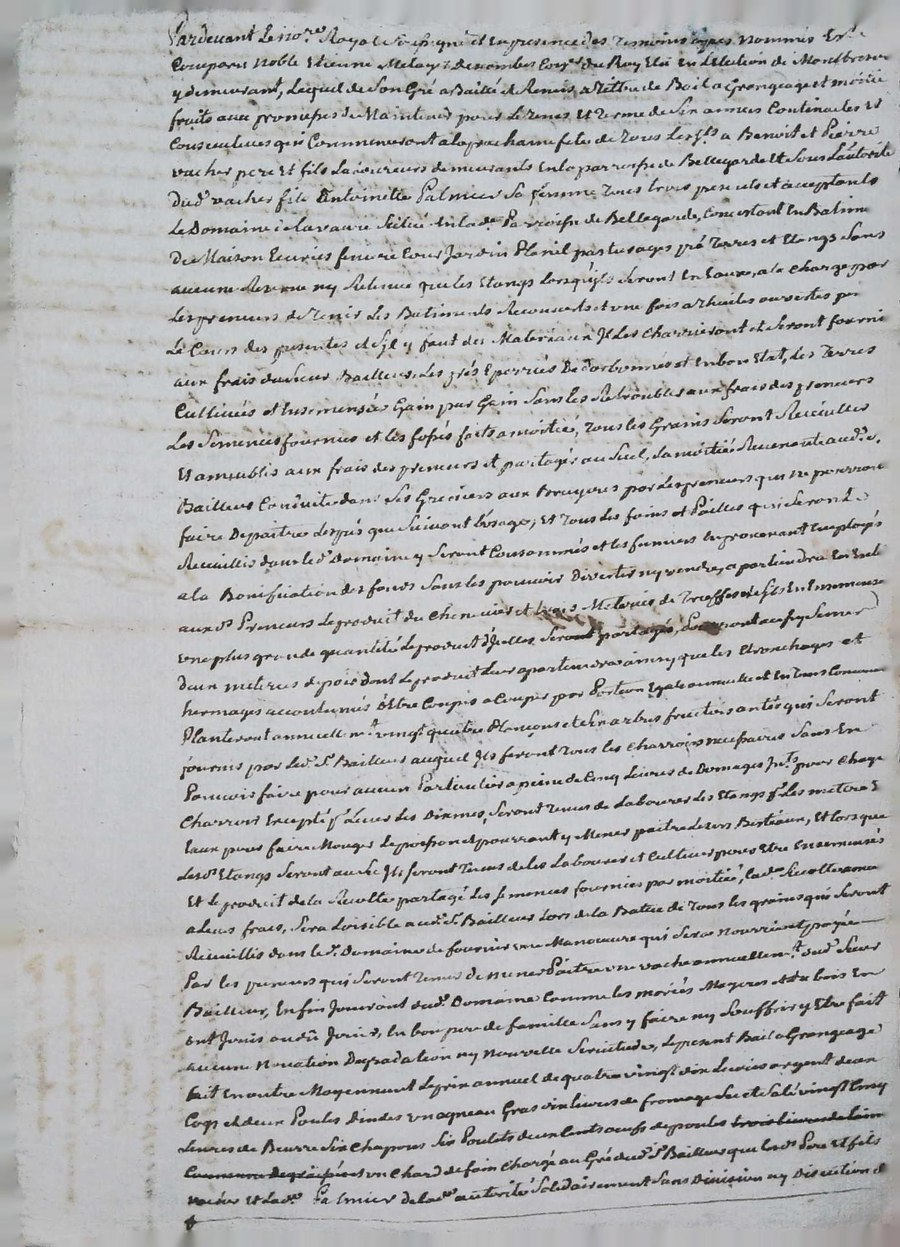 Pardevant le no.re Royal soussigné et en presence des temoins apres nommés Est
Comparu Noble Etienne Meley Decombes Con.er du Roy Elu en Lélection de Montbrison
y demeurant, Lequel de Son Gré a Baillé et Remis a titre de Bail a Grangeage et moitié
fruits aux promesses de Maintenir pour le tems et terme de Six années Continuelles et
Consecutives qui Commenceront a la prochaine fete de Tous les S.ts a Benoit et Pierre
vacher pere et fils Laboureurs demeurants En la parroisse de Bellegarde Et Sous L'autorité
Dud. vacher fils Antoinette Palmier Sa femme Tous trois presents et acceptants
Le Domaine de Lavaure Scitué En lad.e Parroisse de Bellegarde, Consistant En Batim
De Maison Ecuries feniere Cour Jardin pasturages pré Terres et Etangs Sans
aucune Reserve ny Retenue que les Etangs Lorsqu'ils Seront En Eaux, a la Charge par
Les preneurs de Tenir Les Batiments Recouverts et une fois a thuiles ouvertes par
Le Cours des presentes et S'il y faut des Materiaux Ils Les Charrieront et Seront fourni
aux frais du Sieur Bailleur, Les prés et En bon Etat, Les Terres
Cultivées et Ensemensées Gain par Gain Sans les Retroubler aux frais des preneurs
Les Semences fournies et les fossés faits a moitié, Tous les Grains Seront Recueillis
Et amublis aux frais des preneurs et partagés au Suel, La moitié Revenante aud. S.
Bailleur Conduite dans Ses Greniers aux Bruyeres par Les preneurs qui ne pourront
faire Depaitre Les prés que Suivant L'usage, Et Tous les foins et Pailles qui Seront
Recueillis dans led. Domaine y Seront Consommés et les fumiers En provenant Employés
a la Bonification des fonds Sans les pouvoir Divertir ny vendre, appartiendra En Entier
auxd. Preneurs Le produit du Chenevier et trois Meterées de Truffes
une plus grande quantité Le produit d'Icelles Seront partagés, Pourront aussy Semer
deux meterées de pois dont Le produit Leur apartiendra ainsy que les Etronchages et
hermages accoutumés d'Etre Coupés a Couper par Portion Egale annuelle et En Tems Convena
Planteront annuellem.t vingt quatre Plançons et Six arbres fruitiers antés qui Seront
fournis par led. S. Bailleur auquel Ils feront Tous les Charrois necessaires Sans En
Pouvoir faire pour aucun Particulier a peine de Cinq Livres de Domages Int.s pour Chaque
Charroir Excepté p.r Lever Les Dixmes, Seront Tenus de Labourer Les Etangs p.r Les mettre E
Eaux pour faire Manger Le poisson et pourront y Mener paitre Leurs Bestiaux, Et Lors que
Lesd. Etangs Seront au Sec Ils Seront Tenus de les Labourer et Cultiver pour Etre Ensemensés
Et Le produit de la Recolte partagé Les Semences fournies par moitié,
a Leurs frais, Sera Loisible aud. S. Bailleur Lors de la Batue de Tous les grains qui Seront
Recueillis dans le d. Domaine de fournir une Manœuvre qui Sera Nourri et payée
Par les preneurs qui Seront Tenus de Mener Paitre une vache annuellem.t dud. Sieur
Bailleur, Enfin Jouiront dud. Domaine Comme les En
ont Joui ou dû Jouir, En bon pere de famille Sans y faire ny Souffrir y Etre fait
aucune Novation Degradation ny Nouvelle Servitude, Le present Bail a Grangeage
fait En outre Moyennant Le prix annuel de quatre vingt dix Livres argent deux
Coqs et deux Poules Dindes un agneau Gras vin livres de fromage Sec et Salé vingt Cinq
Livres de Beurre Six Chapons Six Poulets deux Cents œufs de poules trois livres de laine
un Chard de foin Chargé au Gré dud. S. Bailleur que Lesd. Pere et fils
vacher Et Lad.e Palmier de lad.e autorité Solidairement Sans Division ny Discution d